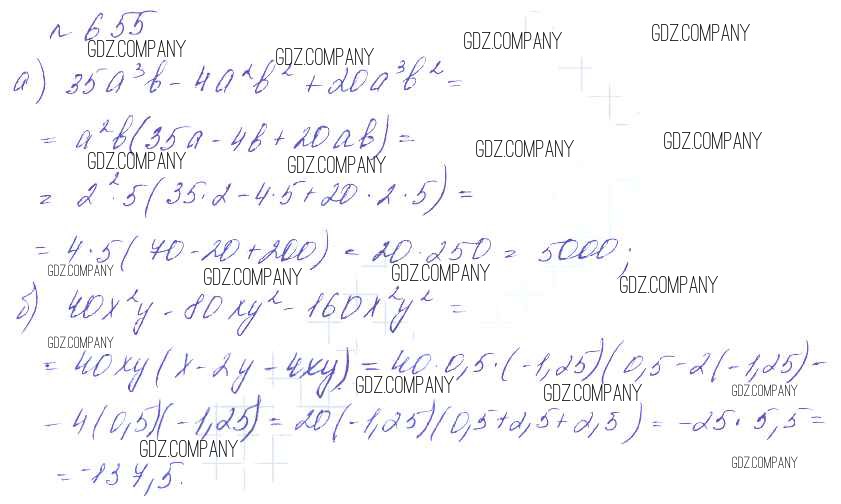 № 655
GDZ.COMPANY GDZ.COMPANY GDZ.COMPANY GDZ.COMPANY
а) 35a³b - 4a²b² + 20a³b² =
= a²b(35a - 4b + 20ab) =
GDZ.COMPANY GDZ.COMPANY GDZ.COMPANY GDZ.COMPANY
= 2²·5(35·2 - 4·5 + 20·2·5) =
= 4·5(70 - 20 + 200) = 20·250 = 5000;
GDZ.COMPANY GDZ.COMPANY GDZ.COMPANY GDZ.COMPANY
б) 40x²y - 80xy² - 160x²y² =
GDZ.COMPANY
= 40xy(x - 2y - 4xy) = 40·0,5·(-1,25)(0,5 - 2(-1,25) -
GDZ.COMPANY GDZ.COMPANY GDZ.COMPANY
- 4(0,5)(-1,25) = 20(-1,25)(0,5+2,5+2,5) = -25·5,5 =
GDZ.COMPANY GDZ.COMPANY
= -137,5.